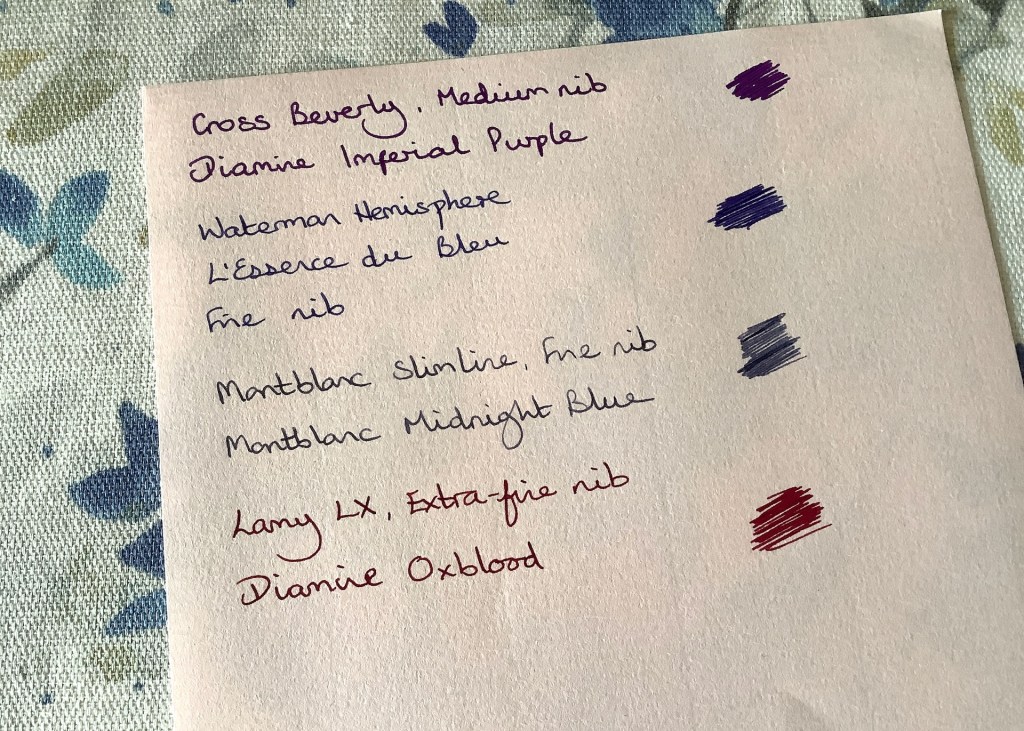 Cross Beverly, Medium nib
Diamine Imperial Purple
Waterman Hemisphere
L'Essence du Bleu
Fine nib
Montblanc Slimline, Fine nib
Montblanc Midnight Blue
Lamy LX, Extra-fine nib
Diamine Oxblood